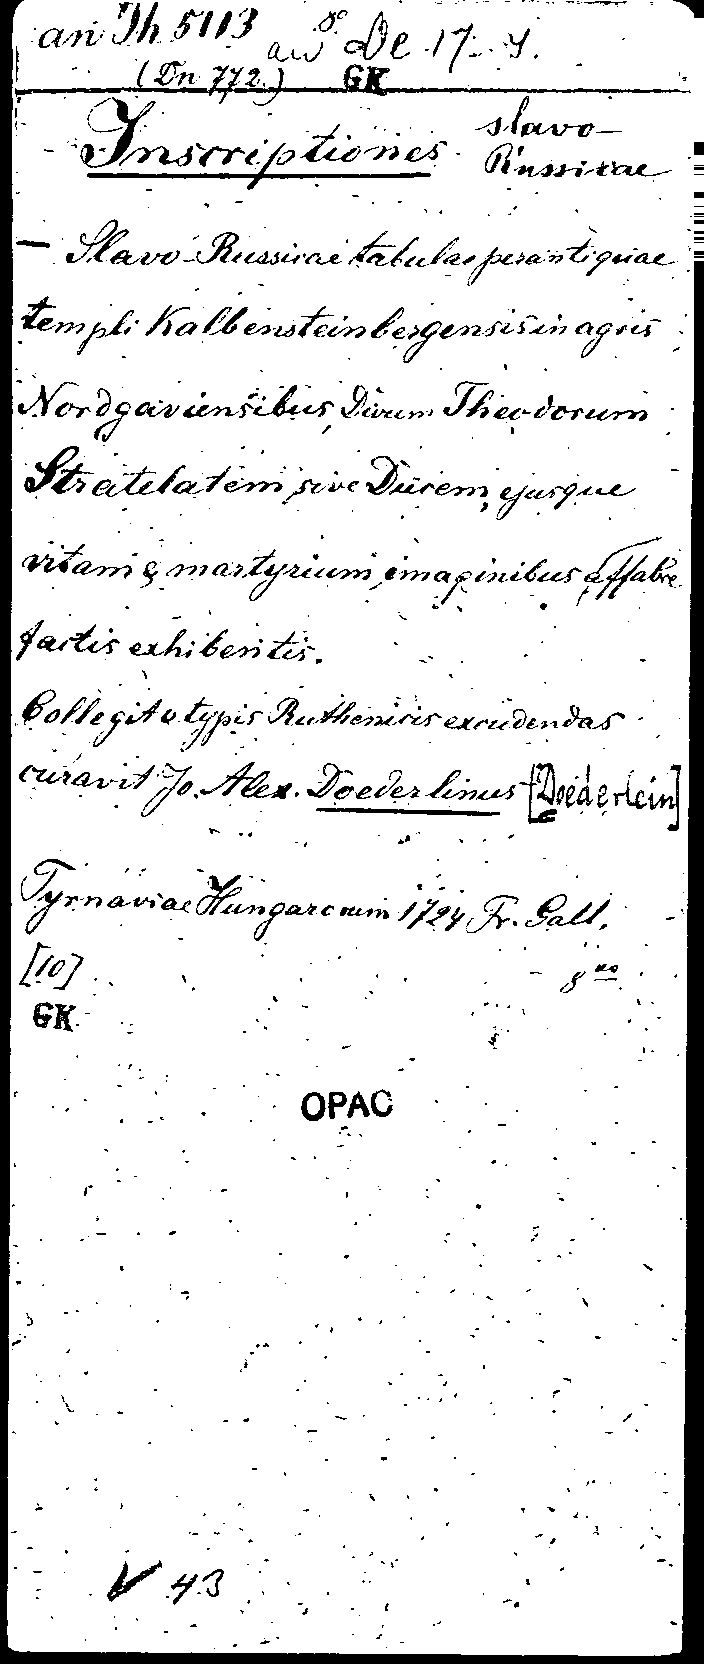 an Th 5113
an 8° De 17-7.
(Dn 772) GK
Inscriptiones slavo-
Russicae
— Slavo-Russicae tabulae perantiquae
templi Kalbensteinbergensis in agris
Nordgaviensibus, Divum Theodorum
Stratelatem, sive Ducem, ejusque
vitam & martyrium, imaginibus affabre
factis exhibentis.
Collegit & typis Ruthenicis excudendas
curavit Jo. Alex. Doederlinus [Doederlein]
Tyrnaviae Hungarorum 1724 Fr. Gall.
[10] 8vo
GK
OPAC
V 43